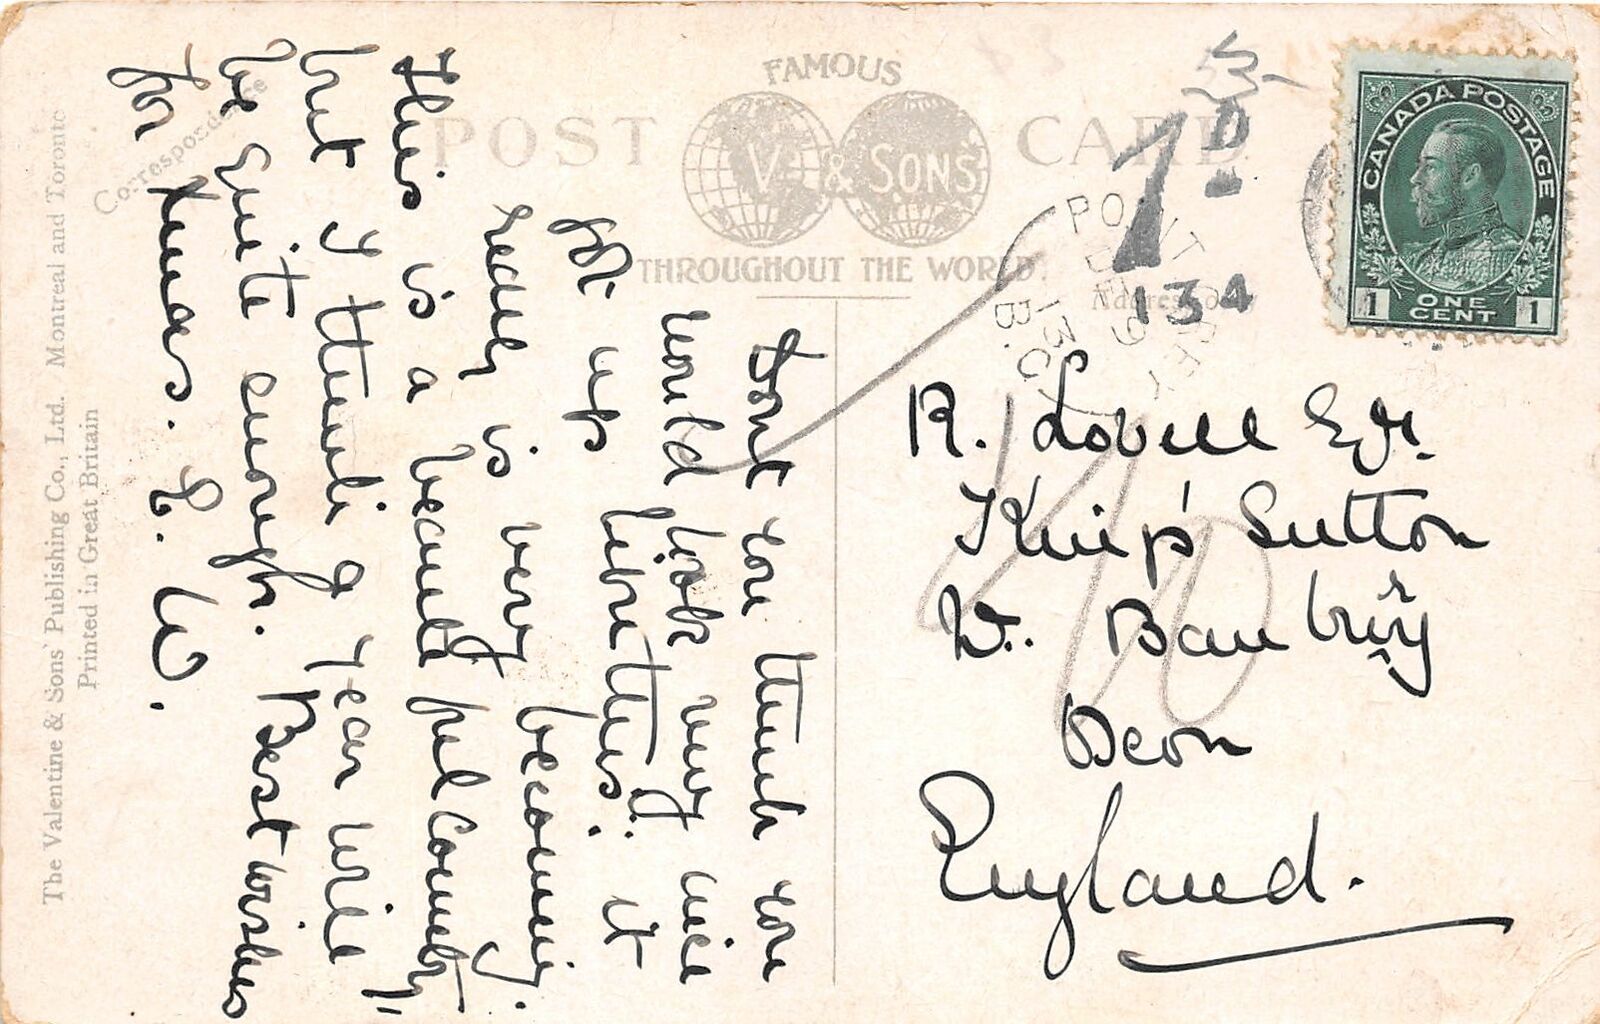 FAMOUS
POST CARD
V. & SONS
THROUGHOUT THE WORLD.
Correspondence
The Valentine & Sons' Publishing Co., Ltd. Montreal and Toronto
Printed in Great Britain
CANADA POSTAGE
1 ONE CENT 1
POINT GREY
DE 9
13
B.C.
1D
134
40
Dont you think you
would look very nice
got up like this: it
really is very becoming.
This is a beautiful country,
but I think a year will
be quite enough. Best wishes
for Xmas. L. W.
R. Lovell Esqr.
King's Sutton
Nr. Banbury
Oxon
England.